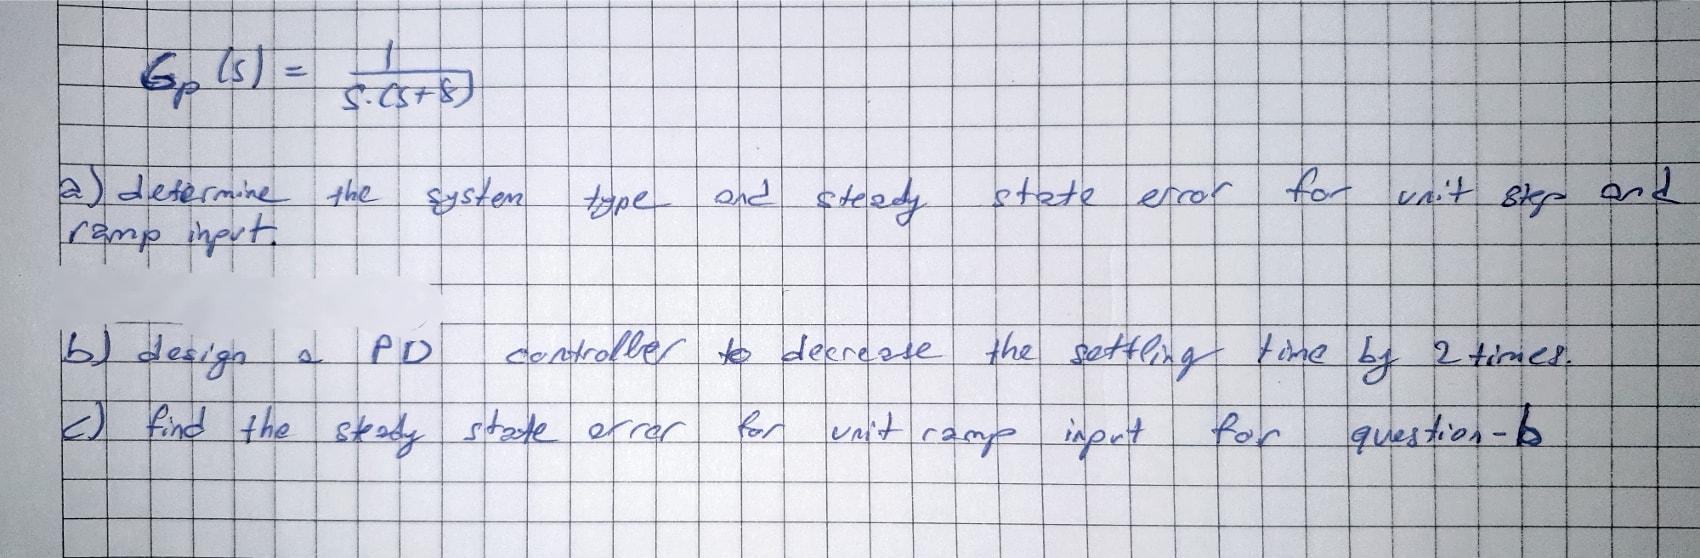 Gp (s) = 1 / s.(s+8)
a) determine the system type and steady state error for unit step and
ramp input.
b) design a PD controller to decrease the settling time by 2 times.
c) find the steady state error for unit ramp input for question-b